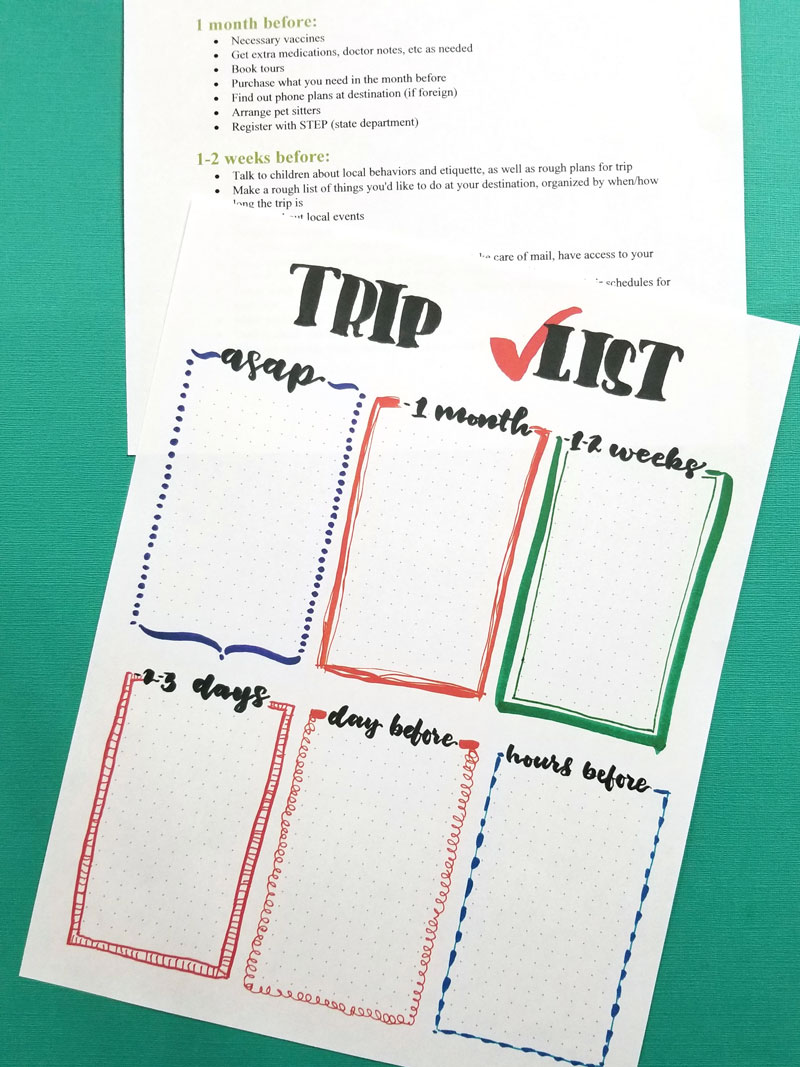 1 month before:
• Necessary vaccines
• Get extra medications, doctor notes, etc as needed
• Book tours
• Purchase what you need in the month before
• Find out phone plans at destination (if foreign)
• Arrange pet sitters
• Register with STEP (state department)
1-2 weeks before:
• Talk to children about local behaviors and etiquette, as well as rough plans for trip
• Make a rough list of things you'd like to do at your destination, organized by when/how
long the trip is
local events
care of mail, have access to your
schedules for
TRIP LIST
asap
-1 month
-1-2 weeks
2-3 days
day before
hours before